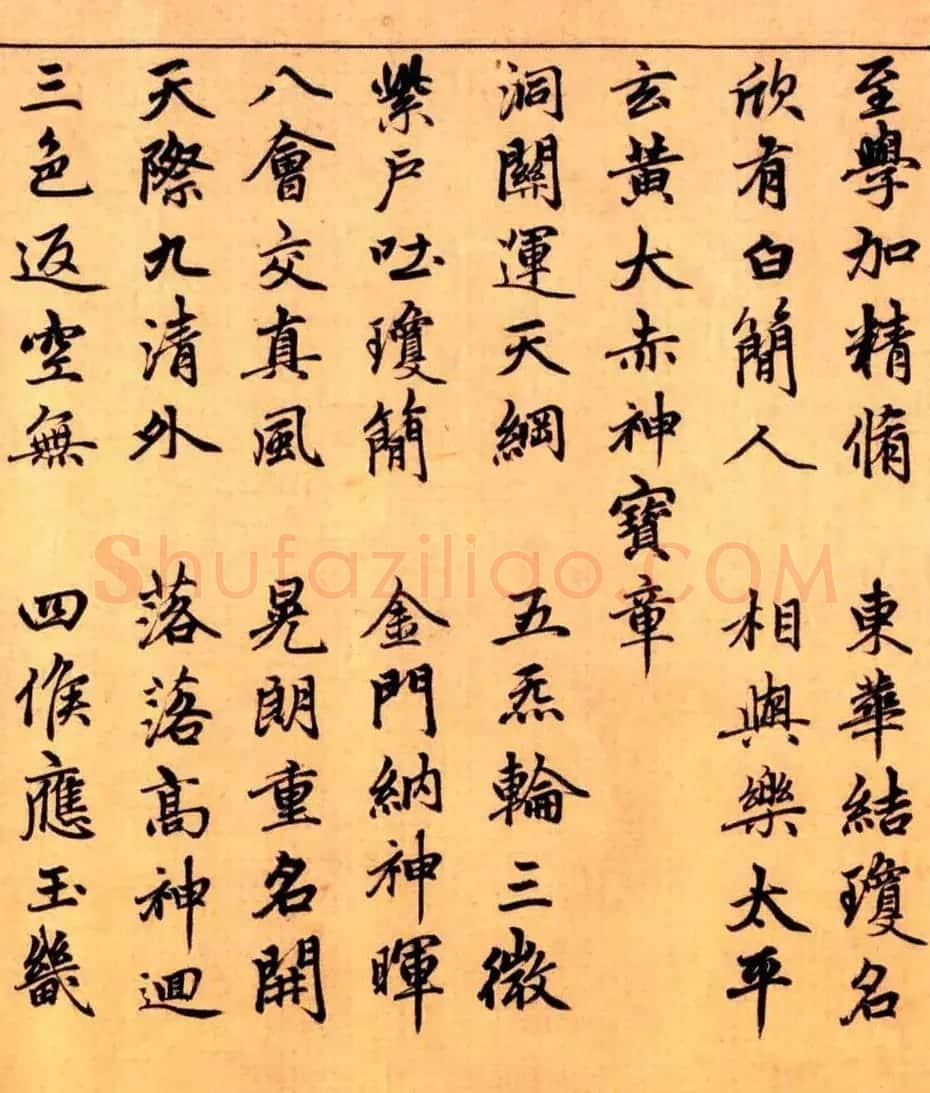 至學加精脩 東華結瓊名
欣有白簡人 相與樂太平
玄黃大赤神寶章
洞關運天綱 五炁輪三微
紫戶吐瓊簡 金門納神暉
八會交真風 晃朗重名開
天際九清外 落落高神迴
三色返空無 四候應玉畿
Shufaziliao.COM